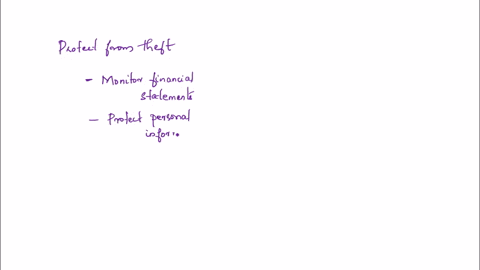 Protect from theft
- Monitor financial
statements
- Protect personal
infor